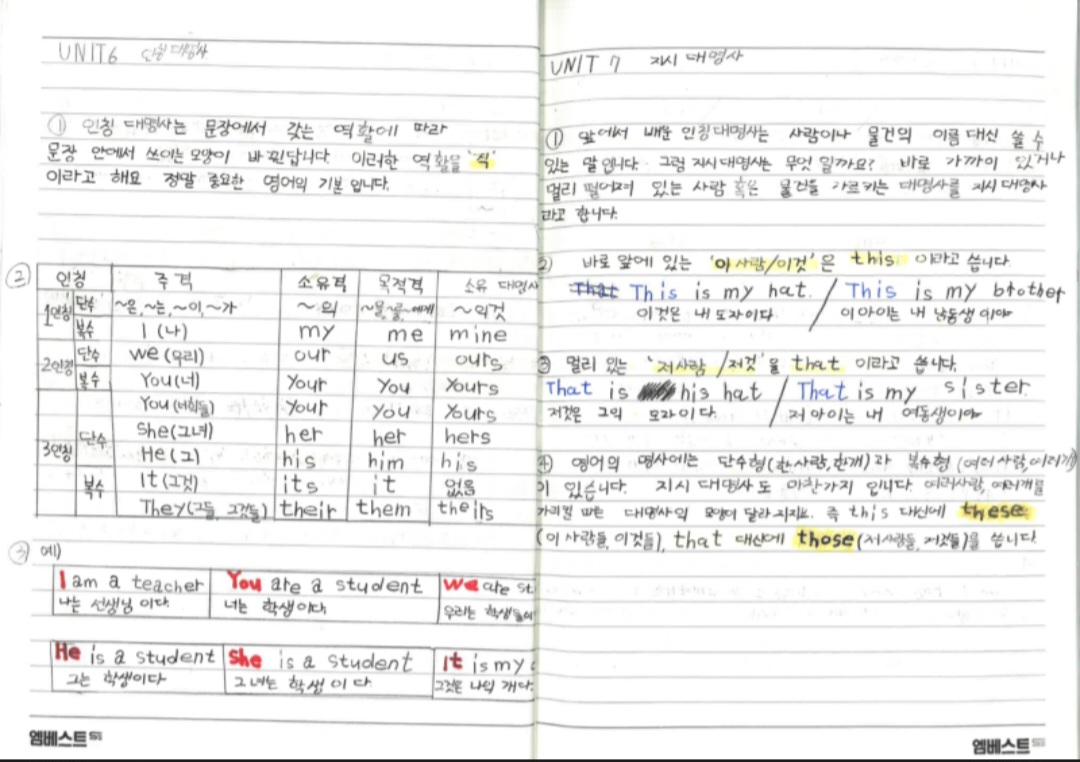 UNIT 6 인칭 대명사
① 인칭 대명사는 문장에서 갖는 역활에 따라
문장 안에서 쓰이는 모양이 바뀐답니다. 이러한 역활을 '격'
이라고 해요 정말 중요한 영어의 기본 입니다.
② 인칭 주격 소유격 목적격 소유 대명사
1인칭 단수 ~은, ~는, ~이, ~가 ~의 ~을, ~를, ~에게 ~의것
복수 I (나) my me mine
2인칭 단수 we (우리) our us ours
복수 You (너) Your You Yours
You (너희들) Your You Yours
3인칭 단수 She (그녀) her her hers
He (그) his him his
복수 It (그것) its it 없음
They (그들, 그것들) their them theirs
③ 예)
I am a teacher You are a student We are st
나는 선생님 이다. 너는 학생이다. 우리는 학생들이
He is a student She is a student It is my
그는 학생이다 그녀는 학생 이 다. 그것은 나의 개다.
엠베스트 SE
UNIT 7 지시 대명사
① 앞에서 배운 인칭대명사는 사람이나 물건의 이름 대신 쓸 수
있는 말 입니다. 그럼 지시 대명사는 무엇 일까요? 바로 가까이 있거나
멀리 떨어져 있는 사람 혹은 물건들 가르키는 대명사를 지시 대명사
라고 합니다.
② 바로 앞에 있는 '이 사람/이것' 은 this 이라고 씁니다.
That This is my hat. / This is my brother
이것은 내 모자이다. 이 아이는 내 남동생 이야
③ 멀리 있는 '저사람/저것' 을 that 이라고 씁니다.
That is his hat / That is my sister.
저것은 그의 모자이다. 저 아이는 내 여동생이야
④ 영어의 명사에는 단수형(한사람, 한개)과 복수형 (여러 사람, 여러개)
이 있습니다. 지시 대명사 도 마찬가지 입니다. 여러사람, 여러개를
가리킬 때는 대명사의 모양이 달라지지요. 즉 this 대신에 these
(이 사람들, 이것들), that 대신에 those (저사람들, 저것들)을 씁니다.
엠베스트 SE